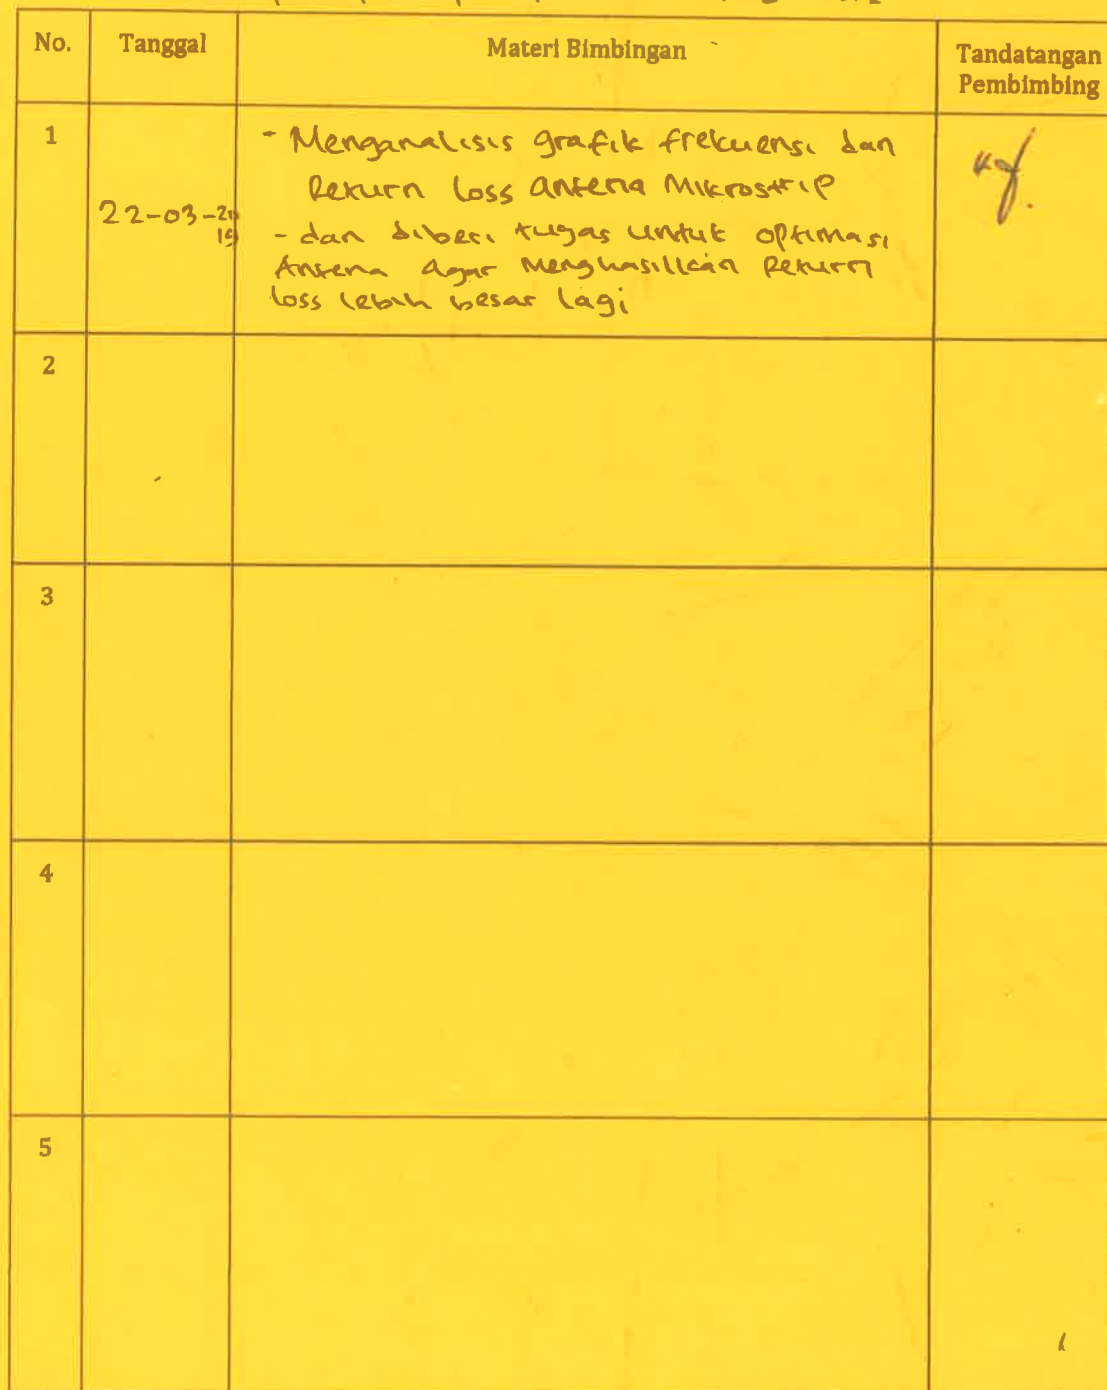 No. Tanggal Materi Bimbingan Tandatangan
Pembimbing
1
- Menganalisis grafik frekuensi dan
Return loss antena Mikrostrip
22-03-20
- dan diberi tugas untuk optimasi
Antena agar Menghasilkan Return
loss lebih besar lagi
2
3
4
5